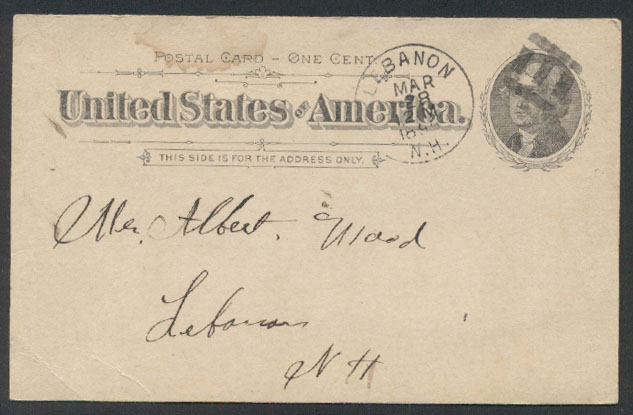 POSTAL CARD – ONE CENT.
United States of America.
THIS SIDE IS FOR THE ADDRESS ONLY.
LEBANON
MAR
28
12 M
N.H.
Mr. Albert. Wood
Lebanon
N H